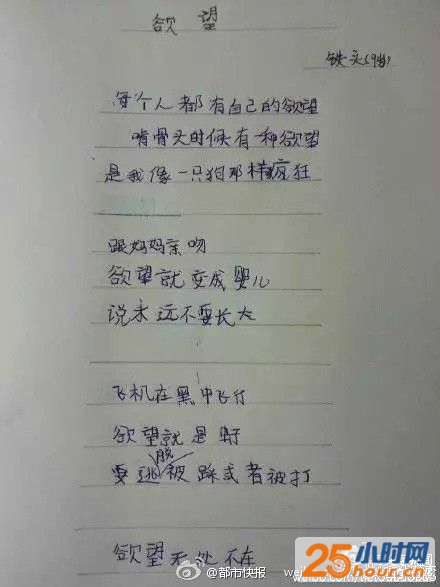 欲望
铁头(9岁)
每个人都有自己的欲望
啃骨头时候有一种欲望
是我像一只狗那样疯狂
跟妈妈亲吻
欲望就变成婴儿
说永远不要长大
飞机在黑中飞行
欲望就是野
要逃脱被踩或者被打
欲望无处不在
@都市快报
25小时网
25hour.cn